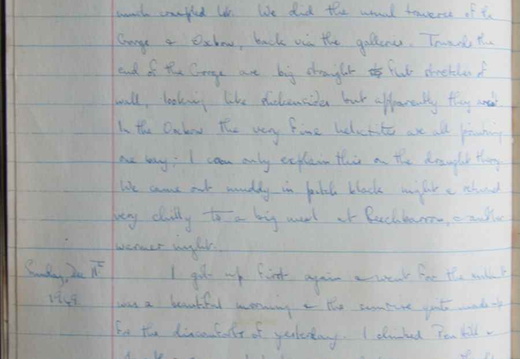 much crumpled 
We did the usual traverse of the
Gorge & Oxbow, back via the galleries. Towards the
end of the Gorge are big straight flat stretches of
wall, looking like slickensides but apparently they aren't
In the Oxbow the very fine helictites are all pointing
one way; I can only explain this on the draught theory
We came out muddy in pitch black night & returned
very chilly to a big meal at Beechbarrow, & another
warmer night.
Sunday, Dec
I got up first again & went for the milk. It
was a beautiful morning & the sunrise quite made up
for the discomforts of yesterday. I climbed Pen Hill &